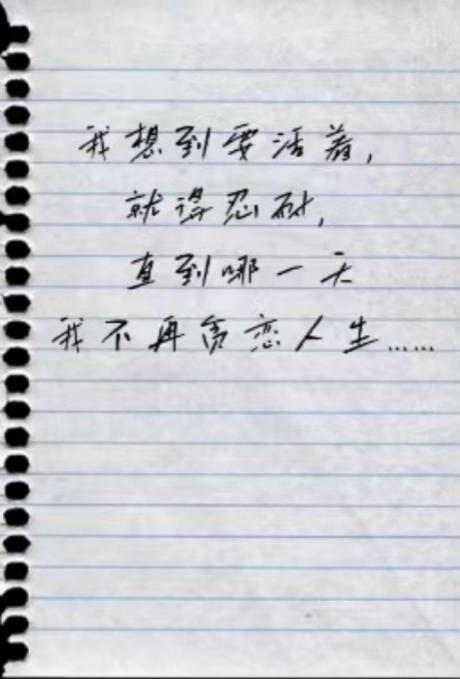 我想到要活着,
就得忍耐,
直到哪一天
我不再贪恋人生……